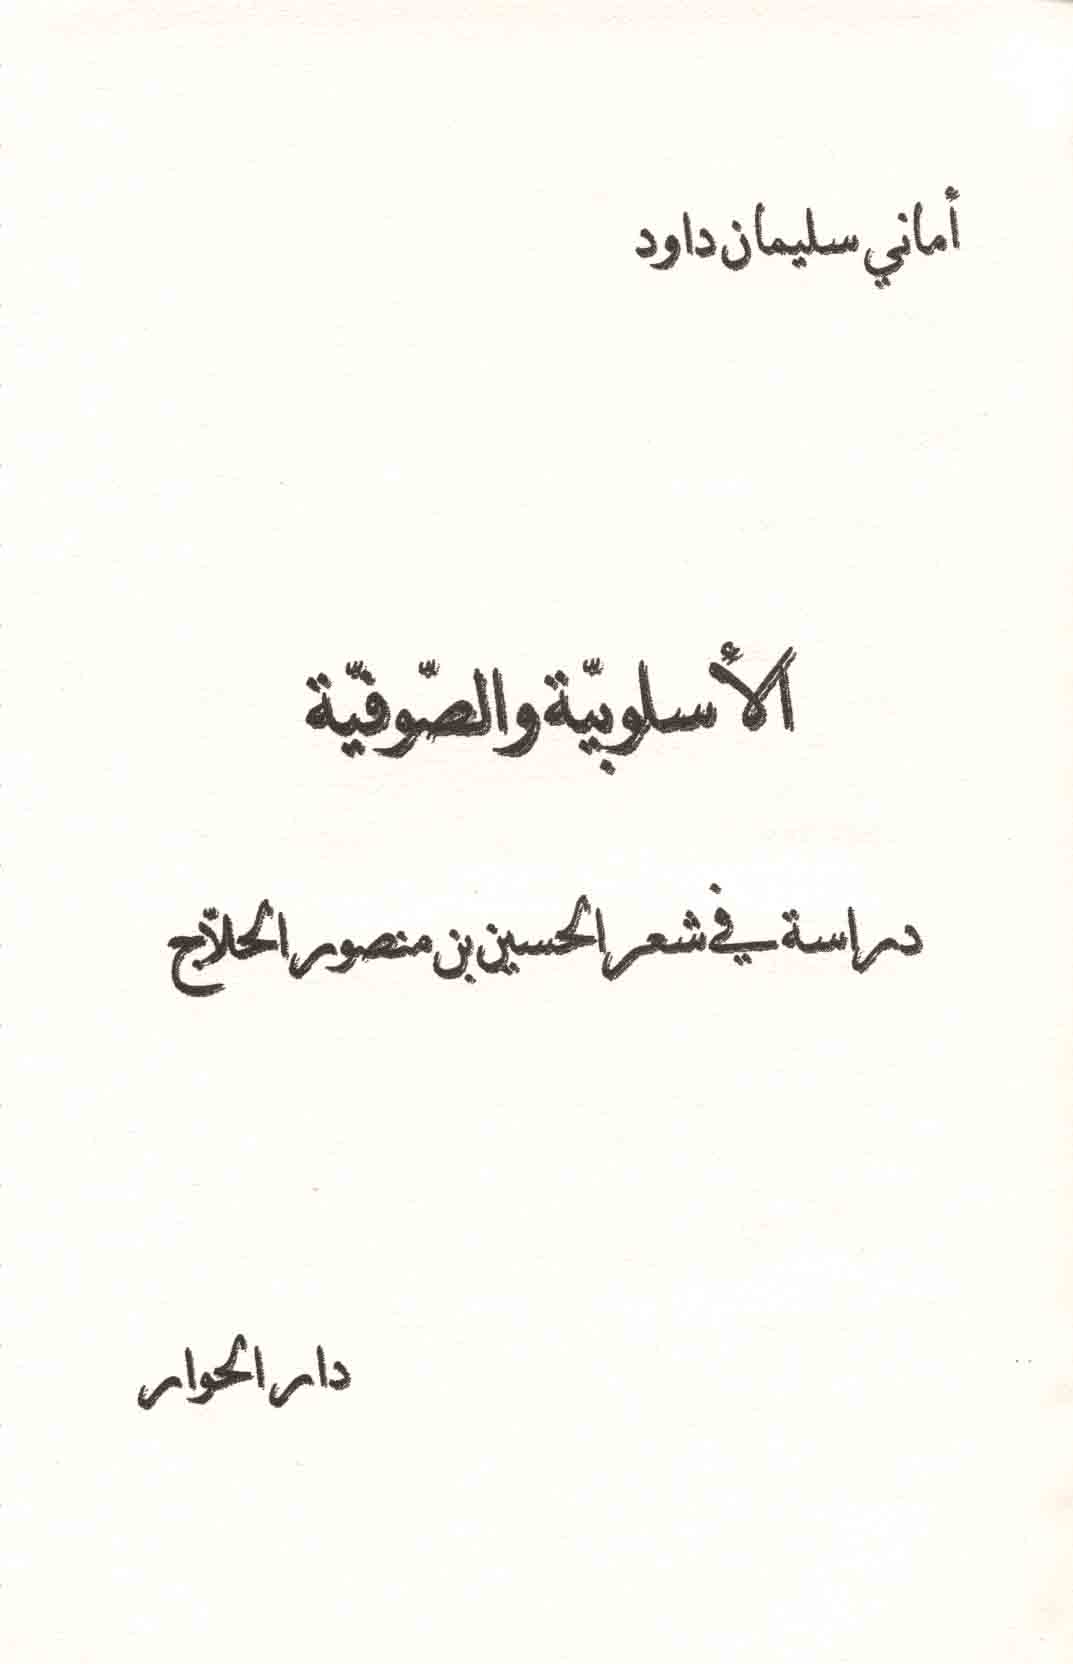 أماني سليمان داود
الأسلوبيّة والصّوفيّة
دراسة في شعر الحسين بن منصور الحلاّج
دار الحوار